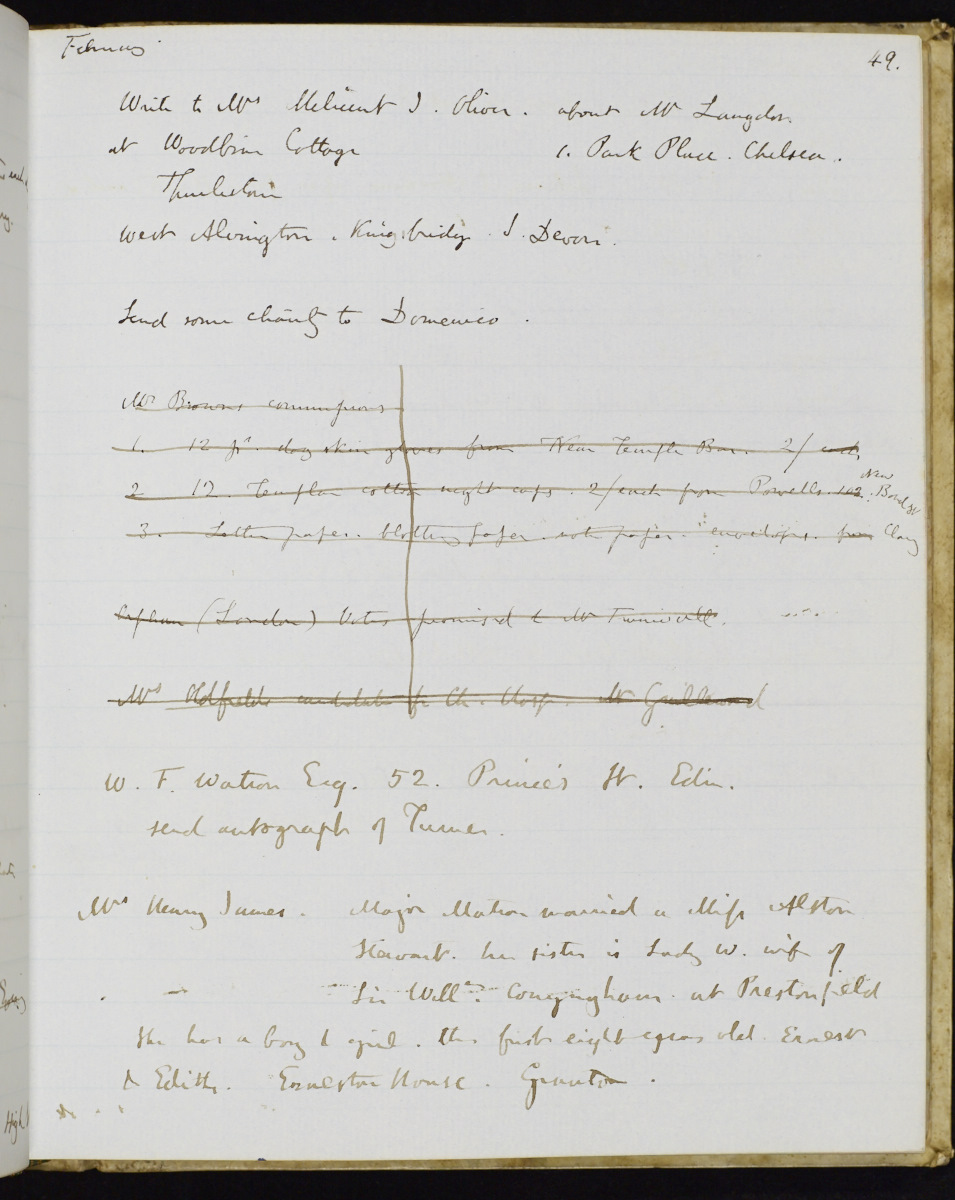 February 49.
Write to Mrs Melicent I. Oliver. about Mr Langdon.
at Woodbine Cottage 1. Park Place. Chelsea.
Thurlestone
West Alvington. Kingsbridge. S. Devon.
Send some charity to Domenico.
Mr Browns commissions
1. 12 pr. dog skin gloves from Near Temple Bar. 2/ each
2 12. Templar cotton night caps. 2/ each from Powells. 102. New Bond St
3. Letter paper. blotting paper. note paper. envelopes. from
Orphan (London) Votes promised to Mr
Mrs Oldfields candidate for Ch. Hosp. Mr
W. F. Watson Esq. 52. Prince's St. Edin.
send autograph of Turner.
Mrs Henry James. Major married a Miss Alston
Stewart. her sister is Lady W. wife of
Sir Willm. Conyngham. at Prestonfield
She has a boy & girl. the first eight years old. Ernest
& Edith. House. Granton.
High